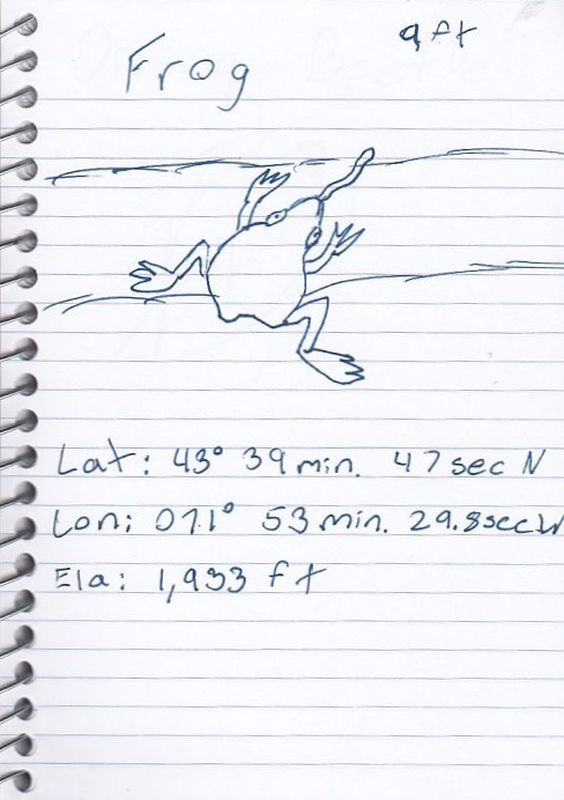 9 ft
Frog
Lat: 43° 39 min. 47 sec N
Lon: 071° 53 min. 29.8 sec W
Ela: 1,933 ft